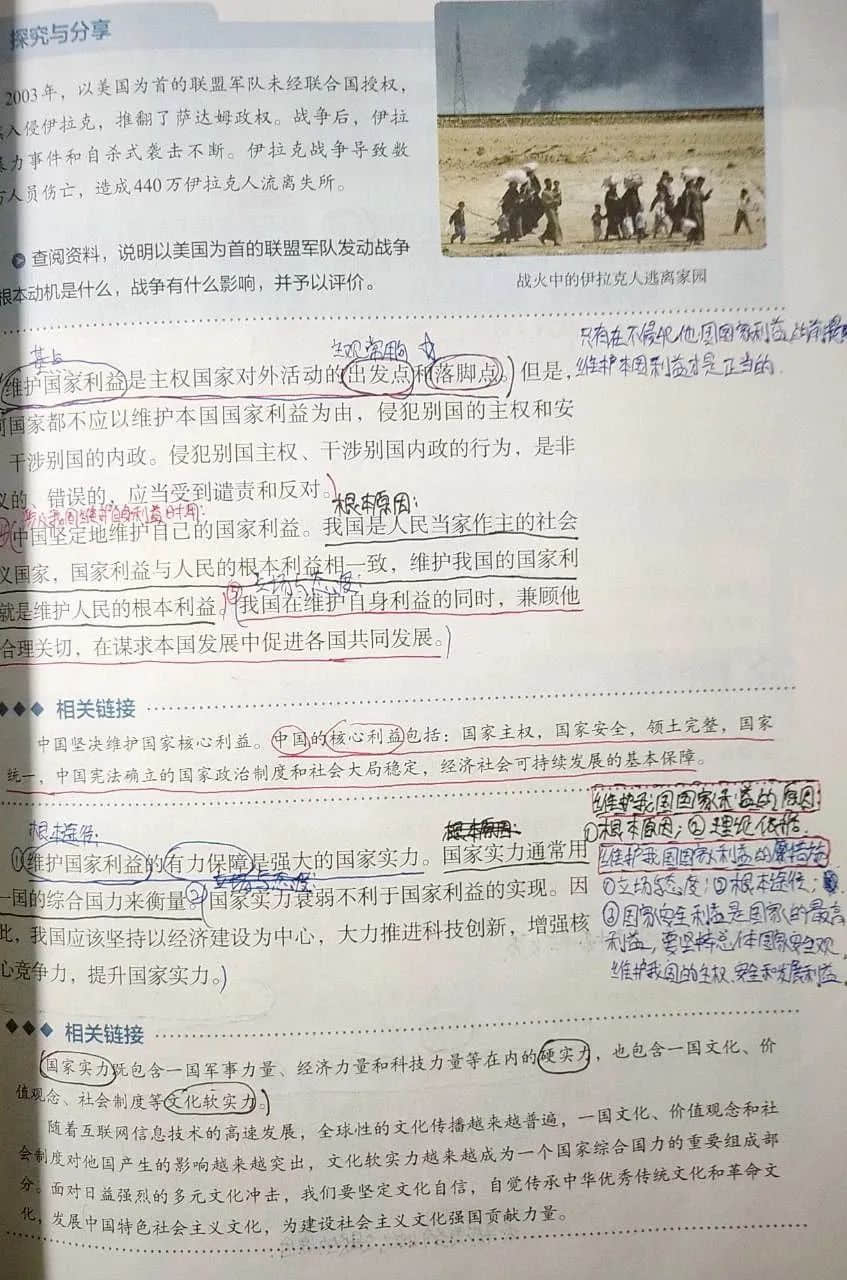 探究与分享
2003年，以美国为首的联盟军队未经联合国授权，
入侵伊拉克，推翻了萨达姆政权。战争后，伊拉
暴力事件和自杀式袭击不断。伊拉克战争导致数
万人员伤亡，造成440万伊拉克人流离失所。
查阅资料，说明以美国为首的联盟军队发动战争
根本动机是什么，战争有什么影响，并予以评价。
战火中的伊拉克人逃离家园
只有在不侵犯他国国家利益的前提
维护本国利益才是正当的.
维护国家利益是主权国家对外活动的出发点和落脚点。但是，
何国家都不应以维护本国国家利益为由，侵犯别国的主权和安
干涉别国的内政。侵犯别国主权、干涉别国内政的行为，是非
义的、错误的，应当受到谴责和反对。
根本原因：
中国坚定地维护自己的国家利益。我国是人民当家作主的社会
义国家，国家利益与人民的根本利益相一致，维护我国的国家利
立场与态度：
就是维护人民的根本利益。⑤我国在维护自身利益的同时，兼顾他
合理关切，在谋求本国发展中促进各国共同发展。
相关链接
中国坚决维护国家核心利益。中国的核心利益包括：国家主权，国家安全，领土完整，国家
统一，中国宪法确立的国家政治制度和社会大局稳定，经济社会可持续发展的基本保障。
维护我国国家利益的原因：
①根本原因；②理论依据.
维护我国国家利益的措施
①立场与态度；②根本途径；
③国家安全利益是国家的最高
利益，要坚持总体国家安全观.
维护我国的主权、安全和发展利益.
根本途径：
①维护国家利益的有力保障是强大的国家实力。国家实力通常用
一国的综合国力来衡量。②国家实力衰弱不利于国家利益的实现。因
此，我国应该坚持以经济建设为中心，大力推进科技创新，增强核
心竞争力，提升国家实力。
相关链接
国家实力既包含一国军事力量、经济力量和科技力量等在内的硬实力，也包含一国文化、价
值观念、社会制度等文化软实力。
随着互联网信息技术的高速发展，全球性的文化传播越来越普遍，一国文化、价值观念和社
会制度对他国产生的影响越来越突出，文化软实力越来越成为一个国家综合国力的重要组成部
分。面对日益强烈的多元文化冲击，我们要坚定文化自信，自觉传承中华优秀传统文化和革命文
化，发展中国特色社会主义文化，为建设社会主义文化强国贡献力量。